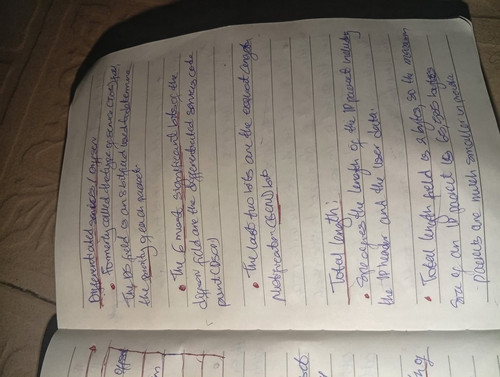 Differentiated services / DSfield:
• Formerly called the type of service (ToS) field,
The DS field is an 8 bit field used to determine
the priority of each packet.
• The 6 most significant bits of the
dsfield field are the differentiated services code
point (DSCP)
• The last two bits are the explicit congestion
Notification (ECN) bits
Total length:
• Specifies the length of the IP packet including
the IP header and the user data.
• Total length field is 2 bytes, so the maximum
size of an IP packet is 65,535 bytes
packets are much smaller in practice